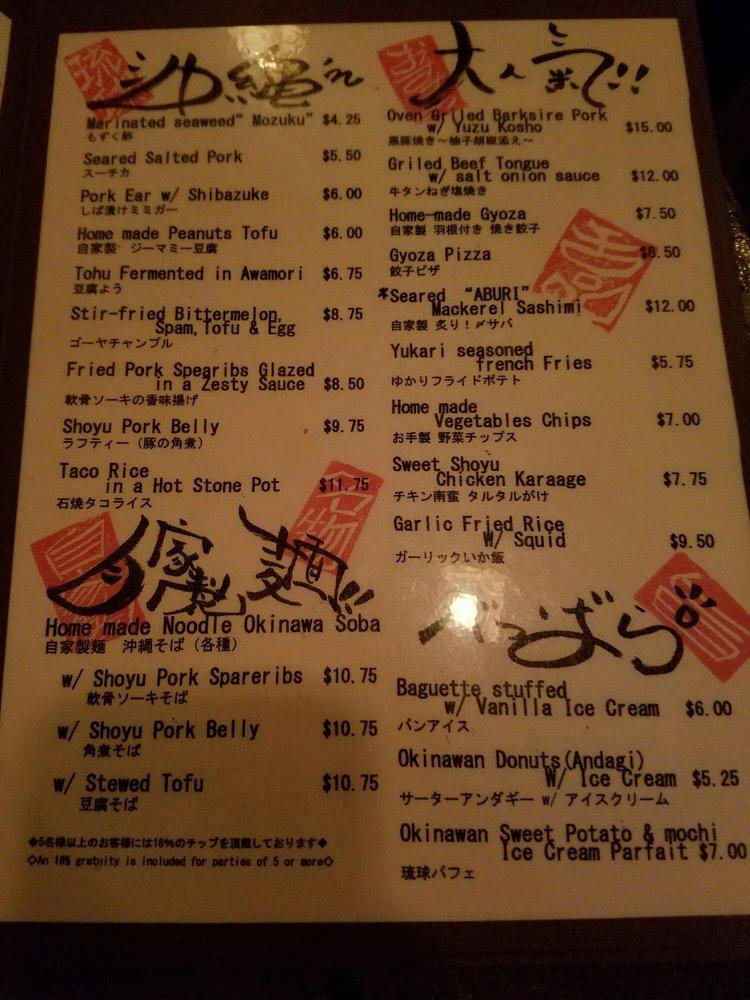 沖縄'n
Marinated seaweed" Mozuku" $4.25
もずく酢
Seared Salted Pork $5.50
スーチカ
Pork Ear w/ Shibazuke $6.00
しば漬けミミガー
Home made Peanuts Tofu $6.00
自家製 ジーマミー豆腐
Tohu Fermented in Awamori $6.75
豆腐よう
Stir-fried Bittermelon, $8.75
Spam,Tofu & Egg
ゴーヤチャンプル
Fried Pork Spearibs Glazed
in a Zesty Sauce $8.50
軟骨ソーキの香味揚げ
Shoyu Pork Belly $9.75
ラフティー（豚の角煮）
Taco Rice
in a Hot Stone Pot $11.75
石焼タコライス
名物
自家製麺!!
Home made Noodle Okinawa Soba
自家製麺 沖縄そば（各種）
w/ Shoyu Pork Spareribs $10.75
軟骨ソーキそば
w/ Shoyu Pork Belly $10.75
角煮そば
w/ Stewed Tofu $10.75
豆腐そば
◆5名様以上のお客様には18%のチップを頂戴しております◆
◇An 18% gratuity is included for parties of 5 or more◇
大人氣!!
Oven Griled Barksire Pork
w/ Yuzu Kosho $15.00
黒豚焼き～柚子胡椒添え～
Griled Beef Tongue
w/ salt onion sauce $12.00
牛タンねぎ塩焼き
Home-made Gyoza $7.50
自家製 羽根付き 焼き餃子
Gyoza Pizza $8.50
餃子ピザ
*Seared "ABURI"
Mackerel Sashimi $12.00
自家製 炙り！〆サバ
Yukari seasoned
french Fries $5.75
ゆかりフライドポテト
Home made
Vegetables Chips $7.00
お手製 野菜チップス
Sweet Shoyu
Chicken Karaage $7.75
チキン南蛮 タルタルがけ
Garlic Fried Rice
W/ Squid $9.50
ガーリックいか飯
べつばら
Baguette stuffed
w/ Vanilla Ice Cream $6.00
パンアイス
Okinawan Donuts(Andagi)
W/ Ice Cream $5.25
サーターアンダギー w/ アイスクリーム
Okinawan Sweet Potato & mochi
Ice Cream Parfait $7.00
琉球パフェ